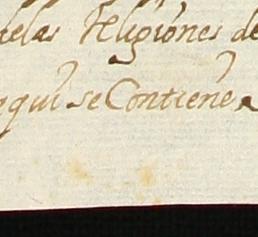 delas Religiones de
aqui se Contiene